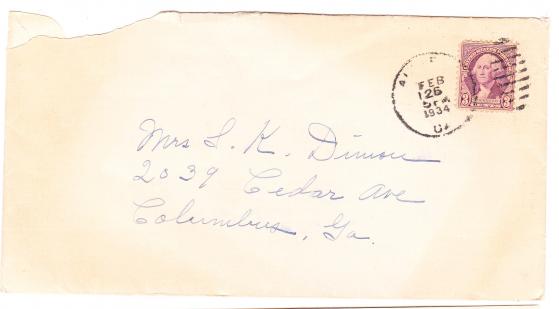 FEB
26
5 PM
1934
GA
3 3
Mrs S. K. Dimon
2039 Cedar Ave
Columbus, Ga.